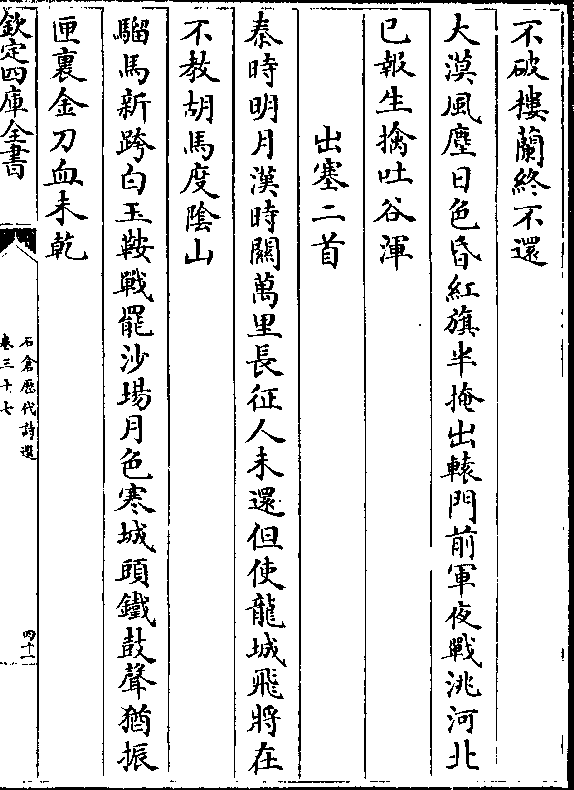 不破樓蘭終不還
大漠風塵日色昏紅旗半掩出轅門前軍夜戰洮河北
已報生擒吐谷渾
出塞二首
秦時明月漢時關萬里長征人未還但使龍城飛將在
不教胡馬度陰山
騮馬新跨白玉鞍戰罷沙場月色寒城頭鐵鼓聲猶振
匣裏金刀血未乾
欽定四庫全書
石倉歴代詩選
卷三十七
四十一